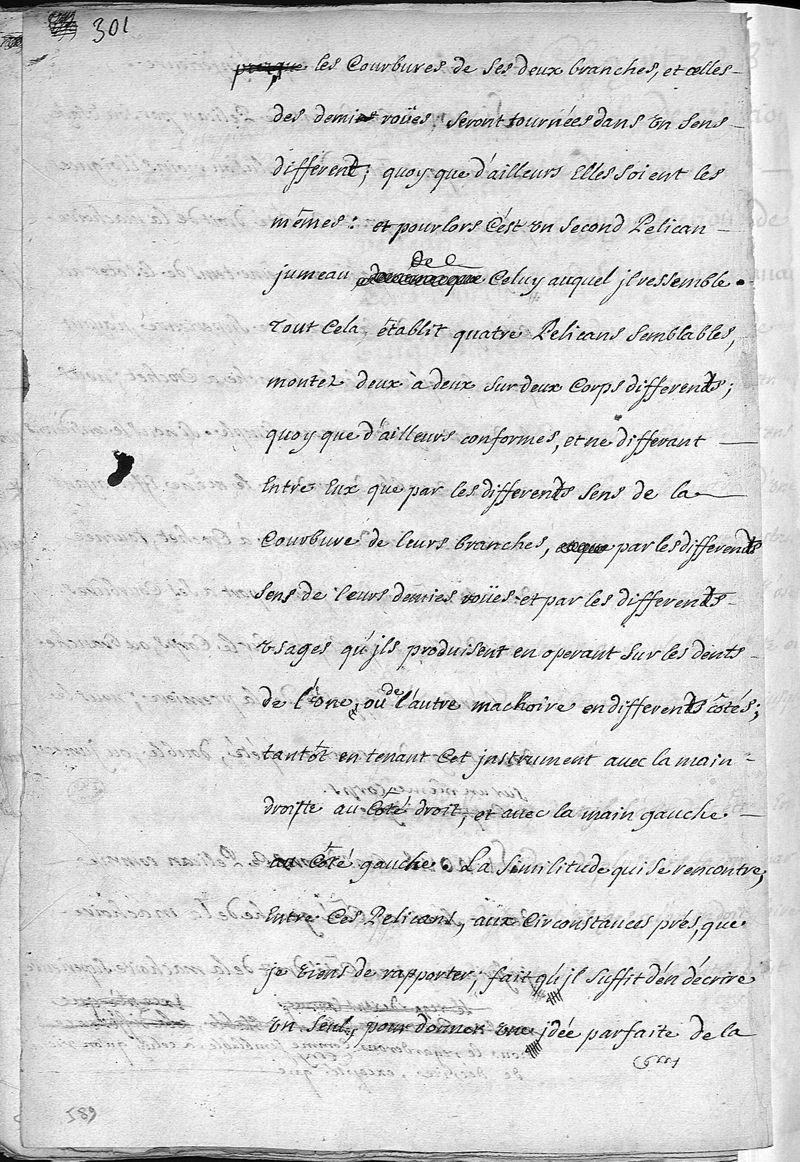 301
les Courbures de ses deux branches, et celles
des demies roües, seront tournées dans un sens
different; quoy que d'ailleurs Elles soient les
mêmes: et pour lors C'est un second Pelican
jumeau de Celuy auquel jl ressemble.
Tout Cela établit quatre Pelicans semblables,
montez deux à deux sur deux Corps differents;
quoy que d'ailleurs conformes, et ne differant
Entre Eux que par les differents sens de la
Courbure de leurs branches, par les differents
sens de leurs demies roües et par les differents
usages qu'jls produisent en operant sur les dents
de l'une, ou de l'autre machoire en differents côtés;
tantôt en tenant Cet jnstrument avec la main
droitte au Coté droit, et avec la main gauche
au Côté gauche. La similitude qui se rencontre,
Entre Ces Pelicans, aux Circonstances prés, que
je viens de rapporter, fait qu'jl suffit d'en décrire
un seul, pour donner une jdée parfaite de la
589